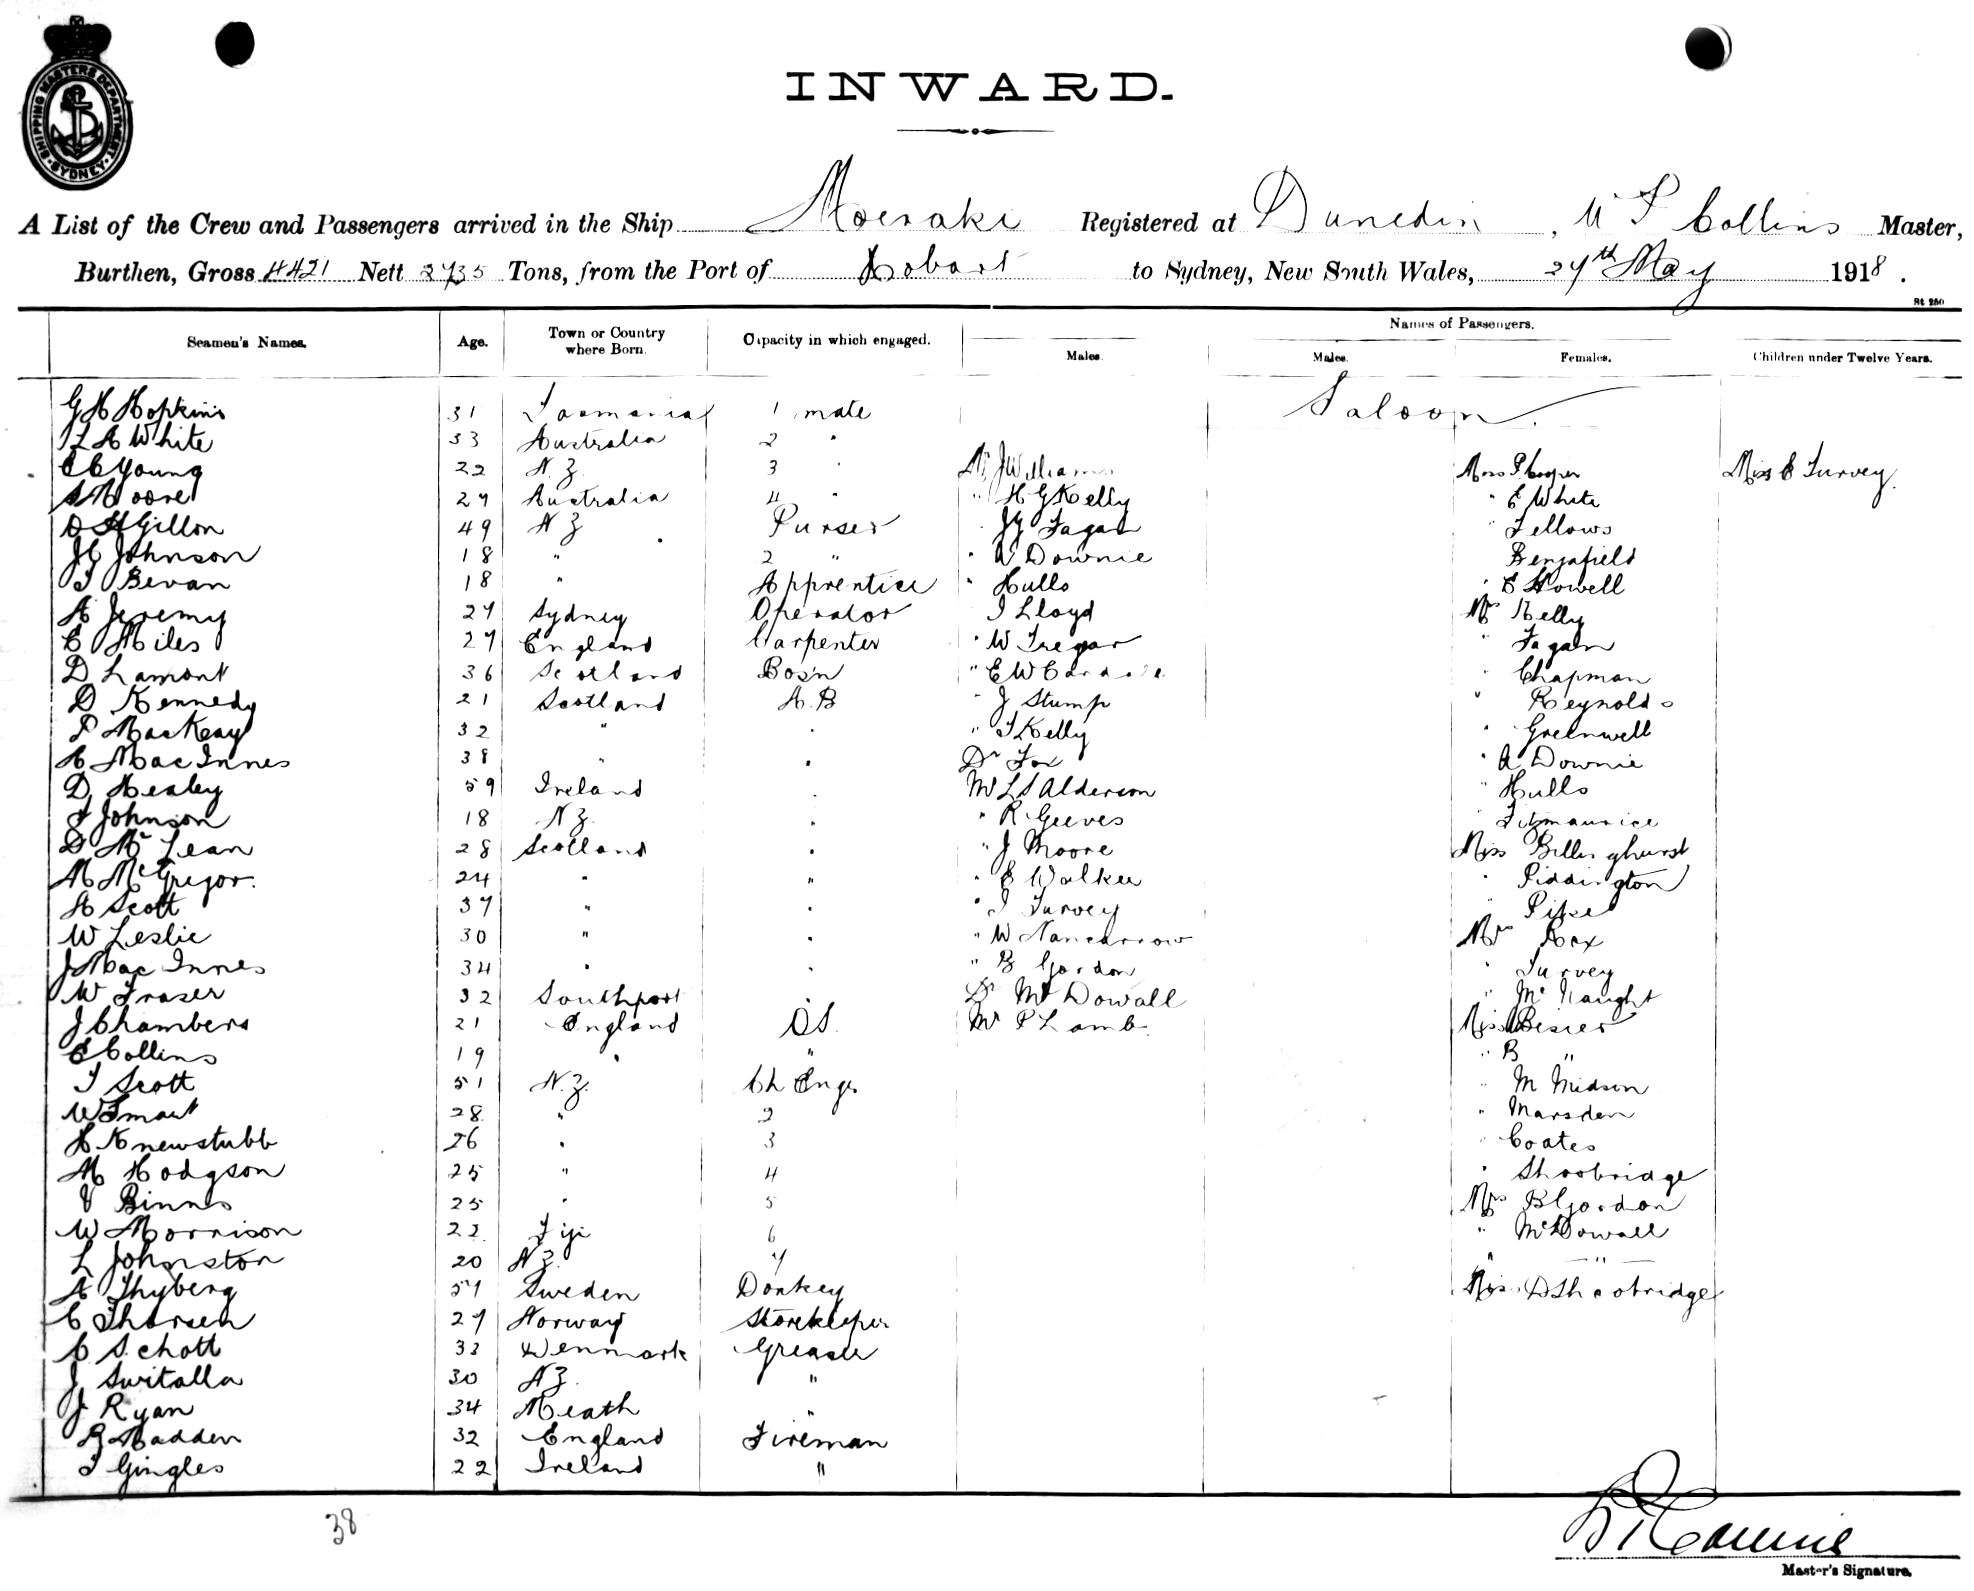 SHIPPING MASTERS DEPARTMENT
SYDNEY
INWARD.
A List of the Crew and Passengers arrived in the Ship Moeraki Registered at Dunedin, W F Collins Master,
Burthen, Gross 4421 Nett 2735 Tons, from the Port of Hobart to Sydney, New South Wales, 27th May 1918.
St 250
Names of Passengers.
Seamen's Names. Age. Town or Country where Born. Capacity in which engaged. Males. Males. Females. Children under Twelve Years.
G H Hopkins 31 Tasmania 1 mate Saloon
A White 33 Australia 2 "
C C Young 22 N.Z. 3 " Mr J Williams Mrs P Cooper Miss E Turvey
S Moore 27 Australia 4 " " H G Kelly " E White
D H Gillon 49 N Z Purser " Fagan " Fellows
J C Johnson 18 " 2 " " W Downie Benjafield
T Bevan 18 " Apprentice " Hulls " E Howell
A Jeremy 27 Sydney Operator J Lloyd Mrs Kelly
C Miles 27 England Carpenter " W Tregar " Fagan
D Lamont 36 Scotland Bos'n " E W " Chapman
D Kennedy 21 Scotland A.B " J Stump " Reynolds
P MacKeay 32 " " " T Kelly " Greenwell
A MacInnes 38 " " Dr Fox " A Downie
D Healey 59 Ireland " Mr L S Alderson " Hulls
J Johnson 18 N.Z. " " R Geeves " Fitzmaurice
D McLean 28 Scotland " " J Moore Miss Billinghurst
M McGregor. 24 " " " E Walker " Piddington
A Scott 37 " " " J Turvey " Pike
W Leslie 30 " " " W Nancarrow Mrs Rex
J MacInnes 34 " " " B Gordon " Turvey
W Fraser 32 Southport Dr McDowall " McNaught
J Chambers 21 England O.S. Mr P Lamb Miss Besier
E Collins 19 " " " B "
T Scott 51 N.Z. Ch Engr " M Midson
W Smart 28 " 2 " Marsden
H Knewstubb 26 " 3 " Coates
M Hodgson 25 " 4 " Shoobridge
V Binns 25 " 5 Mrs B Gordon
W Morrison 22 Fiji 6 " McDowall
L Johnston 20 N Z. 7 " "
A Thyberg 57 Sweden Donkey Miss D Shoobridge
C Thorsen 27 Norway Storekeeper
C Schott 33 Denmark Greaser
J Switalla 30 N Z. "
J Ryan 34 Meath "
R Madden 32 England Fireman
T Gingles 22 Ireland "
38
Master's Signature.